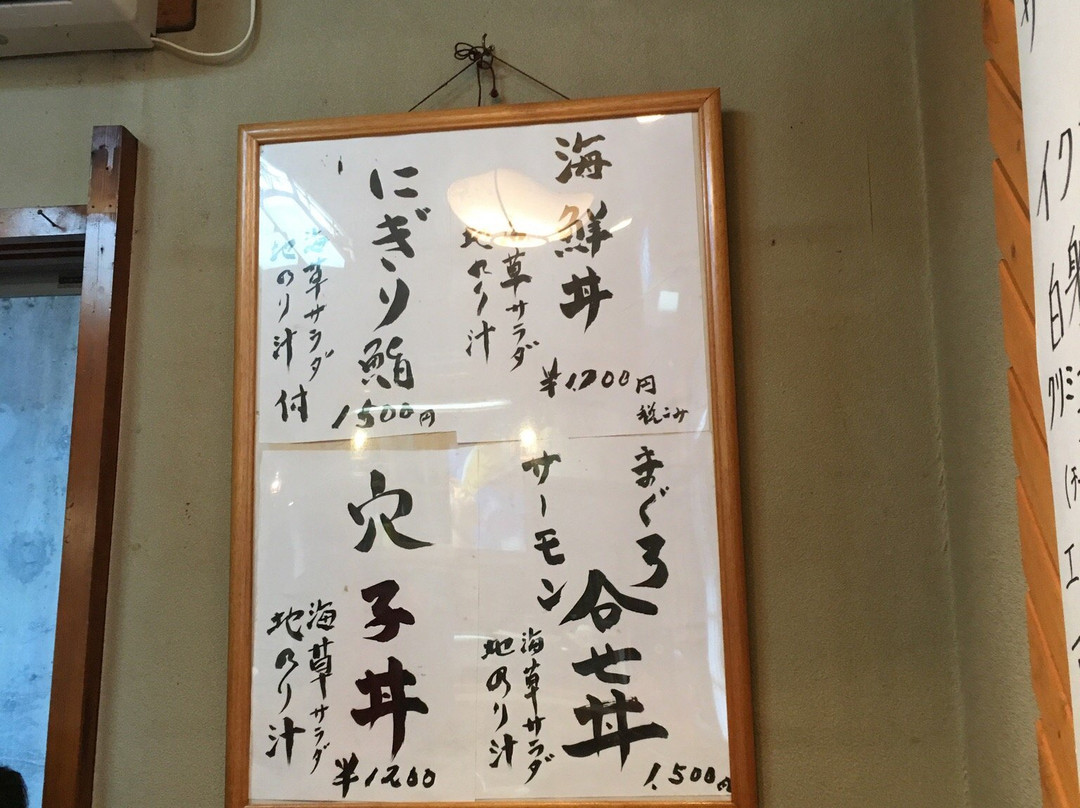 海鮮丼
海草サラダ
地のり汁
¥1,200円
税こみ
にぎり鮨
海草サラダ
地のり汁付
1500円
まぐろ
サーモン
合せ丼
海草サラダ
地のり汁
1,500円
穴子丼
海草サラダ
地のり汁
¥1200
イク
白身